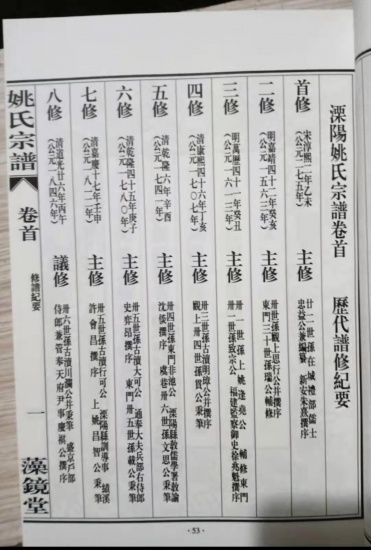 溧陽姚氏宗譜卷首
歷代譜修紀要
首修
宋淳熙二年乙未
(公元一一七五年)
主修
廿二世孫在城禮部儒士
忠益公兼編纂 新安朱熹撰序
二修
明嘉靖四十二年癸亥
(公元一五六三年)
主修
卅世孫戰上思行公并撰序
東門三十世孫瑞公輔修
三修
明萬曆四十一年癸丑
(公元一六一三年)
主修
卅一世孫上姚逢堯公 輔修東門
卅二世孫致宗公 福建監察御史徐兆魁撰序
四修
清康熙四十六年丁亥
(公元一七〇七年)
主修
卅三世孫古瀆明璋公并撰序
戰上卅四世孫 公秉筆
五修
清乾隆六年辛酉
(公元一七四一年)
主修
卅四世孫東門非池公 溧陽縣教儒學署教諭
沈 撰序 虞巷卅六世孫文思公秉筆
六修
清乾隆四十五年庚子
(公元一七八〇年)
主修
卅五世孫古瀆大可公 通奉大夫兵部右侍郎
史奕昂撰序 東門卅五世孫載公秉筆
七修
清嘉慶十七年壬申
(公元一八一二年)
主修
卅五世孫古瀆行可公 溧陽縣訓導事 遠溪
許會昌撰序 上姚昌智公秉筆
八修
清道光廿六年丙午
(公元一八四六年)
議修
卅六世孫古瀆川瀾公并秉筆 盛京戶部
侍郎兼管奉天府尹事慶祺公撰序
姚氏宗譜
卷首
修譜紀要
一
藻鏡堂
·53·